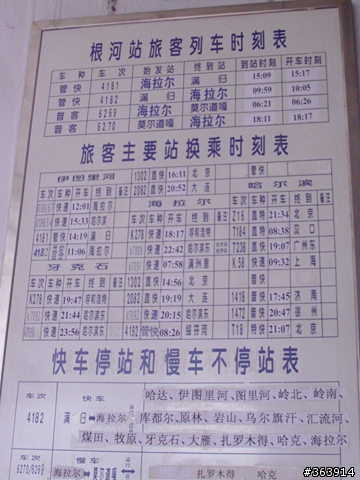 根河站旅客列车时刻表
车种 车次 始发站 终到站 到站时刻 开车时刻
管快 4181 海拉尔 满归 15:09 15:17
管快 4182 满归 海拉尔 09:59 10:05
普客 6269 海拉尔 莫尔道嘎 06:21 06:26
普客 6270 莫尔道嘎 海拉尔 18:11 18:17
旅客主要站换乘时刻表
伊图里河 1302 直快 16:11 北京 管快
车次 车种 开车 终到 备注 2082 直快 20:52 大连 哈尔滨
快速 12:01 海拉尔 海拉尔 车次 车种 开车 终到 备注
快速 15:33 哈尔滨 车次 车种 开车 终到 备注 Z16 直特 21:34 北京
4181 管快 14:19 满归 K279 快速 18:17 呼和浩特 T184 特快 08:38 汉口
4182 管客 11:06 海拉尔 快速 22:42 哈尔滨东 T238 特快 19:07 广州东
牙克石 快速 07:58 满洲里 K58 快速 09:32 上海
车次 车种 开车 终到 备注 1302 直快 14:56 北京 普快
K278 快速 19:47 呼和浩特 2082 直快 19:19 大连 1418 快速 17:45 济南
快速 21:44 哈尔滨东 快速 20:15 哈尔滨东 1472 快速 20:47 徐州
快速 23:56 哈尔滨东 4192 管快 08:26 绥芬河 T18 特快 21:07 北京
快车停站和慢车不停站表
车次 快车 哈达、伊图里河、图里河、岭北、岭南、
4182 满归 海拉尔 库都尔、原林、岩山、乌尔旗汗、汇流河、
煤田、牧原、牙克石、大雁、扎罗木得、哈克、海拉尔
车次 慢车
海拉尔 扎罗木得 哈克
#363914